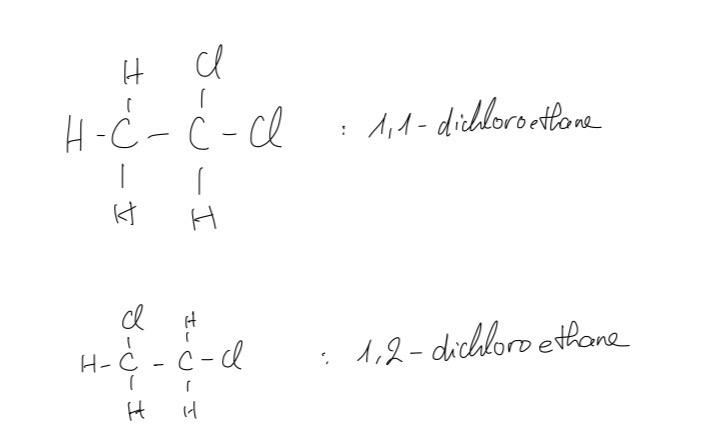 H Cl
H-C-C-Cl : 1,1-dichloroethane
H H
Cl H
H-C-C-Cl : 1,2-dichloroethane
H H